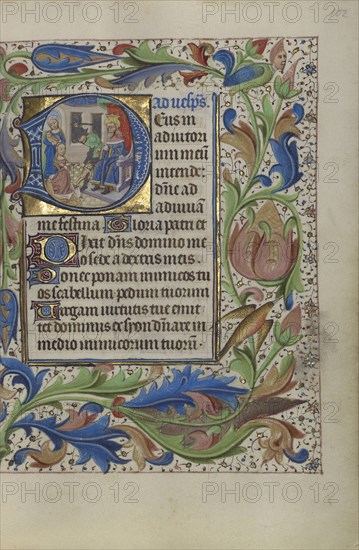 ad vesp̄s.
Deus in
adiutori
um meū
intende:
dñe ad
adiuuā
me festina Gloria patri et
Dixit dñs domino me
o sede a dextris meis
Donec ponam inimicos tu
os scabellum pedum tuorum
Virgam uirtutis tue emit
tet dominus ex syon dñare in
medio inimicorum tuorū
PHOTO 12